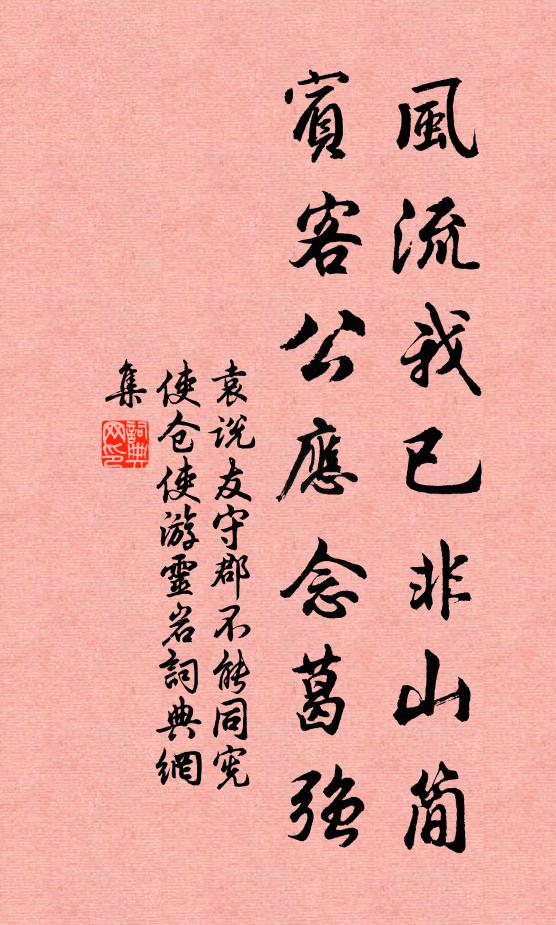 風流我已非山簡
賓客公應念葛強
袁説友守郡不能同憲
使仓使游靈岩詞典網
集
詞典網印